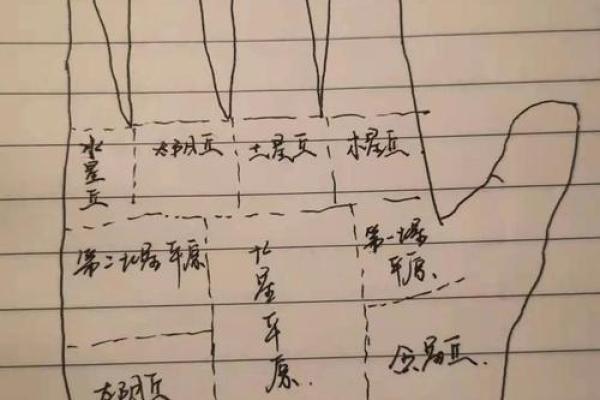 水星丘
太阳丘
土星丘
木星丘
第二火星平原
火星平原.
第一火星平原.
金星丘.